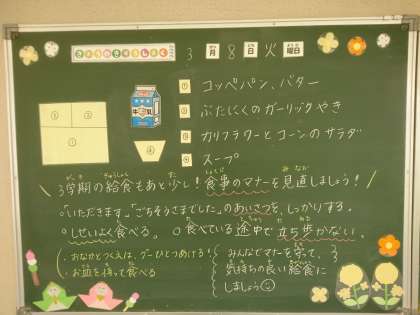 きょうのきゅうしょく 3月8日火曜日
① コッペパン、バター
② ぶたにくのガーリックやき
③ カリフラワーとコーンのサラダ
④ スープ
牛乳
③ ②
①
④
3学期の給食もあと少し！食事のマナーを見直しましょう！
○「いただきます」「ごちそうさまでした」のあいさつを、しっかりする。
○しせいよく食べる。 ○食べている途中で立ち歩かない。
・おなかとつくえは、グーひとつあける！
・お皿を持って食べる
みんなでマナーを守って、
気持ちの良い給食に
しましょう